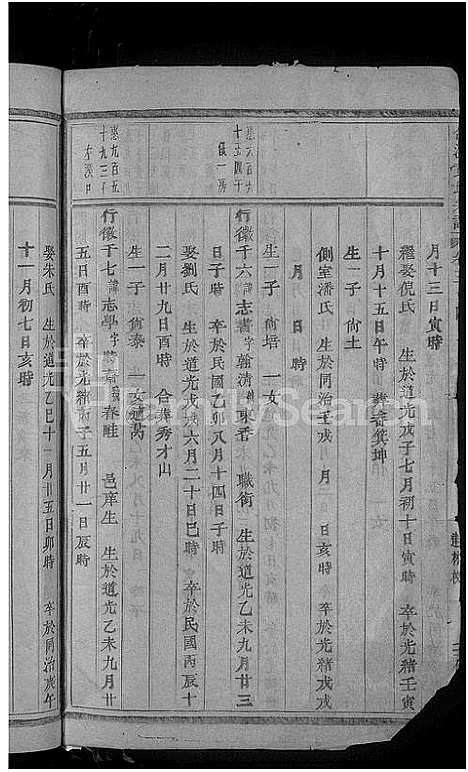 月十三日寅時
繼娶倪氏 生於道光戊子七月初十日寅時 卒於光緒壬寅
十月十五日午時 葬
生一子 尙土
側室潘氏 生於同治壬戌 月 日亥時 卒於光緒戊戌
月 日 時
生一子 尙培 一女
行徽千六諱志書字翰清號東香 職銜 生於道光乙未九月廿三
日子時 卒於民國乙卯八月十四日子時
娶劉氏 生於道光戊戌六月二十日巳時 卒於民國丙辰十
二月廿九日酉時 合葬秀才山
生一子 尙泰 一女適
行徽千七諱志學字 齋號春畦 邑庠生 生於道光乙未九月廿
五日酉時 卒於光緒丙子五月廿一日辰時
娶朱氏 生於道光乙巳十一月廿五日卯時 卒於同治庚午
十一月初七日亥時
FamilySearch